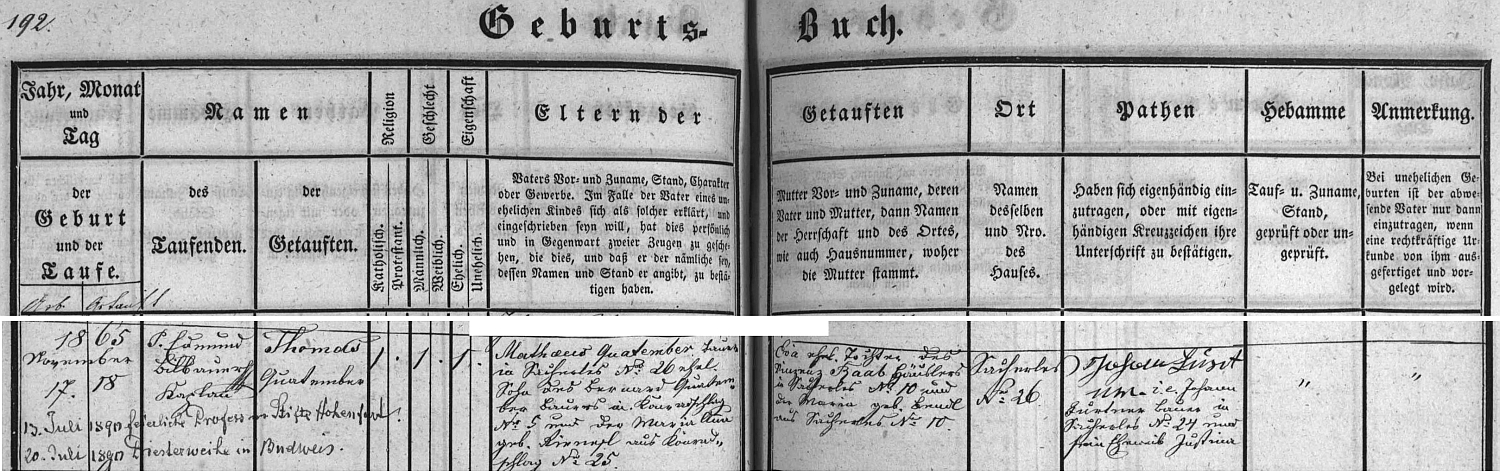 192.
Geburts-
Buch.
Jahr, Monat
und
Tag
Namen
Religion
Geschlecht
Eigenschaft
Eltern der
der
Geburt
und der
Taufe.
des
Taufenden.
der
Getauften.
Katholisch.
Protestant.
Männlich.
Weiblich.
Ehelich.
Unehelich.
Vaters Vor- und Zuname, Stand, Charakter
oder Gewerbe. Im Falle der Vater eines un-
ehelichen Kindes sich als solcher erklärt, und
eingeschrieben seyn will, hat dies persönlich
und in Gegenwart zweier Zeugen zu gesche-
hen, die dies, und daß er der nämliche sey,
dessen Namen und Stand er angibt, zu bestä-
tigen haben.
Geb. Getauft
1865
November
17. 18
P. Edmund
Bilbauer
Kaplan
Thomas
Quatember
1 . 1 . 1 .
Mathaeus Quatember Bauer
in Sacherles No. 26 ehel.
Sohn des Bernard Quatem-
ber Bauers in Konradschlag
No. 5 und der Maria Anna
geb. aus Konrad-
schlag No. 25.
13. Juli 1890 feierliche Profess im Stifte Hohenfurt.
20. Juli 1890 Priesterweihe in Budweis.
Getauften
Ort
Pathen
Hebamme
Anmerkung.
Mutter Vor- und Zuname, deren
Vater und Mutter, dann Namen
der Herrschaft und des Ortes,
wie auch Hausnummer, woher
die Mutter stammt.
Namen
desselben
und Nro.
des
Hauses.
Haben sich eigenhändig ein-
zutragen, oder mit eigen-
händigen Kreuzzeichen ihre
Unterschrift zu bestätigen.
Tauf- u. Zuname,
Stand,
geprüft oder un-
geprüft.
Bei unehelichen Ge-
burten ist der abwe-
sende Vater nur dann
einzutragen, wenn
eine rechtkräftige Ur-
kunde von ihm aus-
gefertiget und vor-
gelegt wird.
Eva ehel. Tochter des
Raab Häuslers
in Sacherles No. 10 und
der Maria geb. Bendl
aus Sacherles No. 10.
Sacherles
No. 26
Johann
i.e. Johann
Bauer in
Sacherles No. 24 und
sein Eheweib Justina
"
"